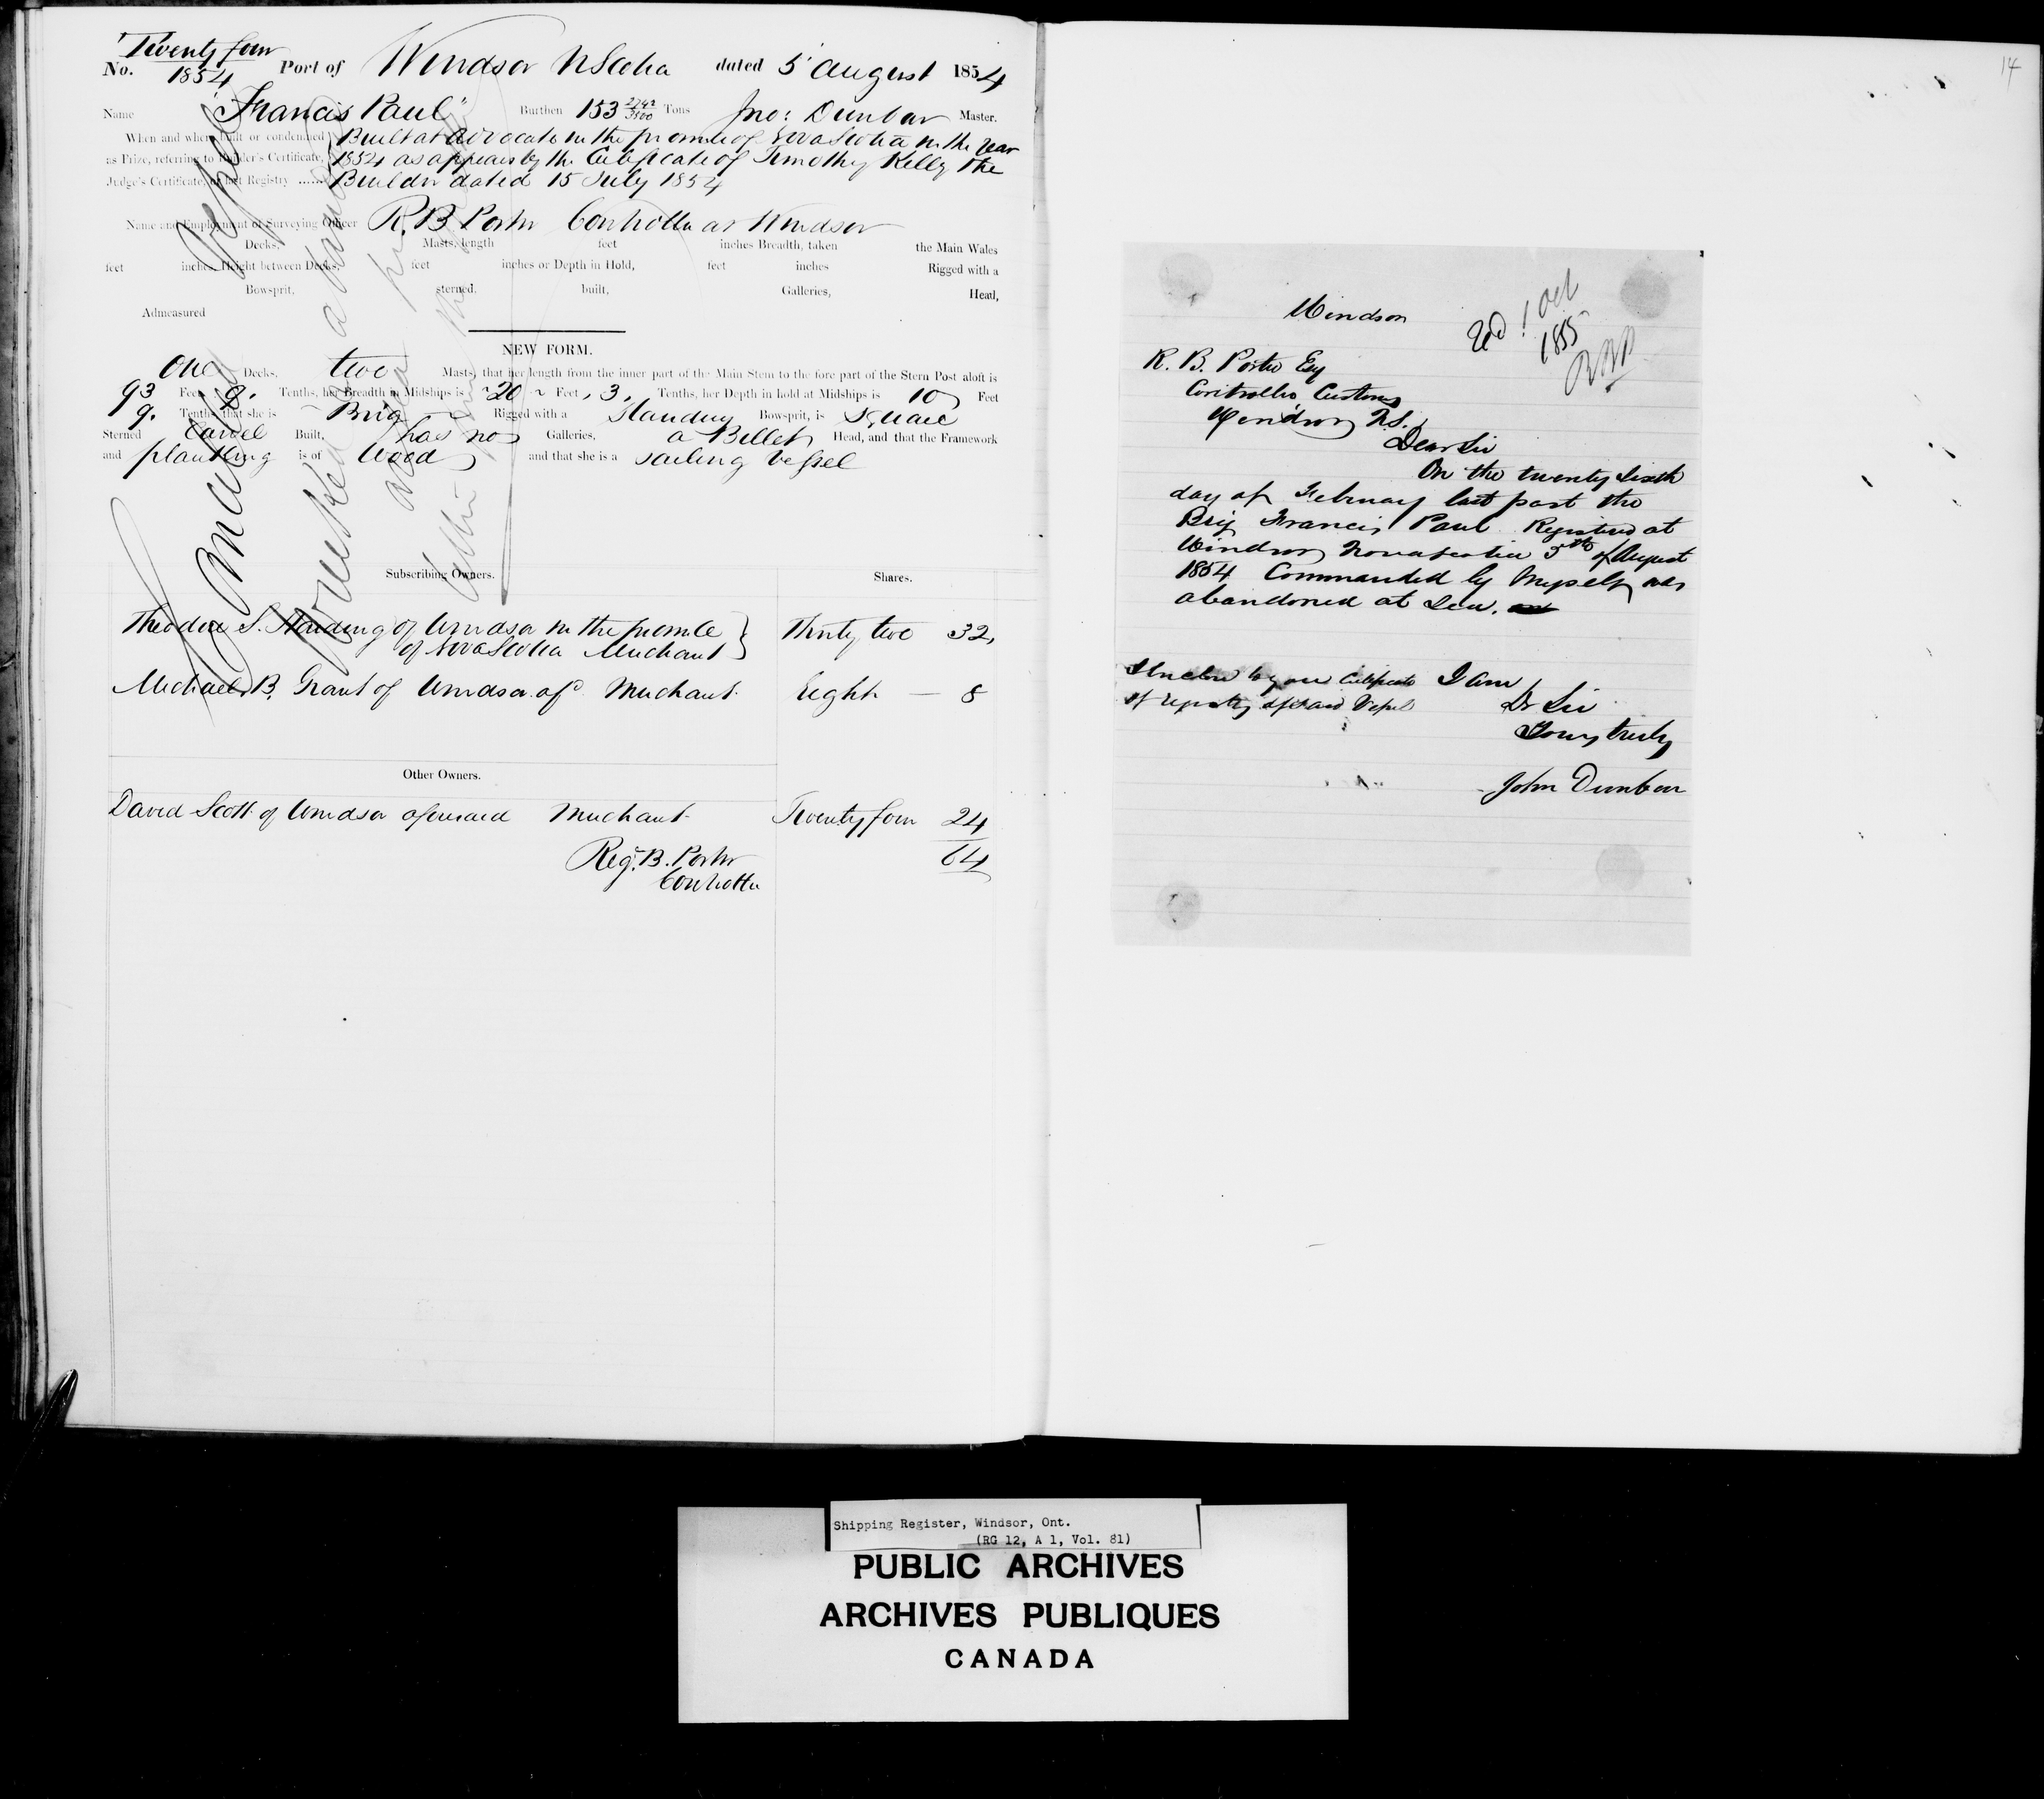 Twenty four
No. 1854 Port of Windsor N Scotia dated 5 August 1854
Name "Francis Paul" Burthen 153 2742/3500 Tons Jno: Dunbar Master.
When and where built or condemned Built at Advocate in the province of Nova Scotia in the year
as Prize, referring to Builder's Certificate, 1854 as appears by the Certificate of Timothy Kelly the
Judge's Certificate, or last Registry ...... Builder dated 15 July 1854
Name and Employment of Surveying Officer R. B Porter Controller at Windsor
Decks, Masts, length feet inches Breadth, taken the Main Wales
feet inches Height between Decks, feet inches or Depth in Hold, feet inches Rigged with a
Bowsprit, sterned, built, Galleries, Head,
Admeasured
NEW FORM.
One Decks, two Masts, that her length from the inner part of the Main Stem to the fore part of the Stern Post aloft is
93 Feet 8. Tenths, her Breadth in Midships is 20 Feet, 3, Tenths, her Depth in hold at Midships is 10 Feet
9. Tenths, that she is Brig Rigged with a Standing Bowsprit, is square
Sterned Carvel Built, has no Galleries, a Billet Head, and that the Framework
and planking is of Wood and that she is a sailing vessel
Vessel
wrecked abandoned
Subscribing Owners. Shares.
Theodore S. Harding of Windsor in the province Thirty two 32,
of Nova Scotia Merchant
Michael B. Grant of Windsor afd Merchant Eight — 8
Other Owners.
David Scott of Windsor aforesaid Merchant Twenty four 24
64
Reg. B. Porter
Controller
14
Windsor
Recd 1 Oct
1855
RBP
R. B. Porter Esq
Controller Customs
Windsor N.S.
Dear Sir
On the twenty sixth
day of February last past the
Brig Francis Paul Registered at
Windsor Novascotia 5th of August
1854 Commanded by Myself was
abandoned at Sea.
I Enclose to you Certificate I am
of registry of said Vessel Dr Sir
Yours truly
John Dunbar
Shipping Register, Windsor, Ont.
(RG 12, A 1, Vol. 81)
PUBLIC ARCHIVES
ARCHIVES PUBLIQUES
CANADA